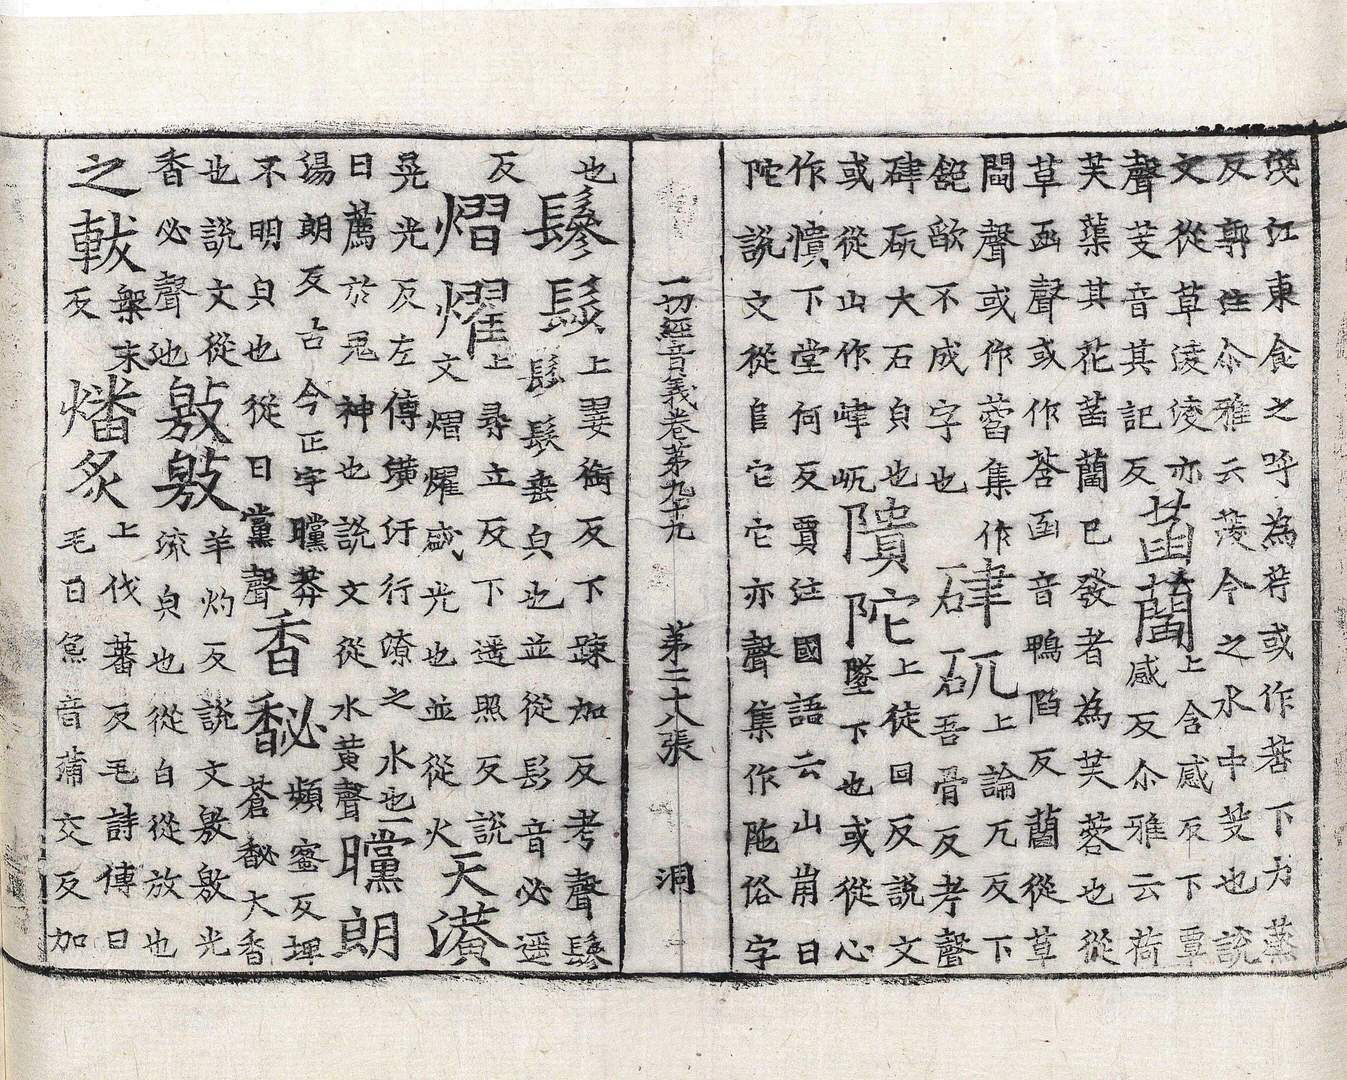 淺江東食之呼為䓑或作菩下力蒸
反郭注尒雅云蔆今之水中芰也說
文從草淩淩亦
聲芰音其記反
菡藺
上含感反下覃
感反尒雅云荷
芙蕖其花菡藺已發者為芙蓉也從
草函聲或作莟函音鴨䧟反藺從草
閻聲或作蓞集作
𩜶歃不成字也
硉矹
上論兀反下
吾骨反考聲
硉矹大石皃也
或從山作峍屼
隤陀
上徒回反說文
墜下也或從心
作憒下堂何反賈注國語云山崩曰
陀說文從𨸏它它亦聲集作陁俗字
一切經音義卷第九十九 第二十八張 洞
也
鬖髿
上㛐銜反下疎加反考聲鬖
髿髟髮垂皃也並從髟音必遥
反
熠燿
上尋立反下遥照反說
文熠燿盛光也並從火
天潢
晃光反左傳潢汙行潦之水也
曰薦於鬼神也說文從水黃聲
曭朗
湯朗反古今正字曭莽
不明皃也從日黨聲
香馝
頻蜜反埤
蒼馝大香
也說文從
香必聲也
敫敫
羊灼反說文敫敫光
流皃也從白從放也
之軷
槃末
反
燔炙
上伐蕃反毛詩傳曰
毛曰炰音蒲交反加